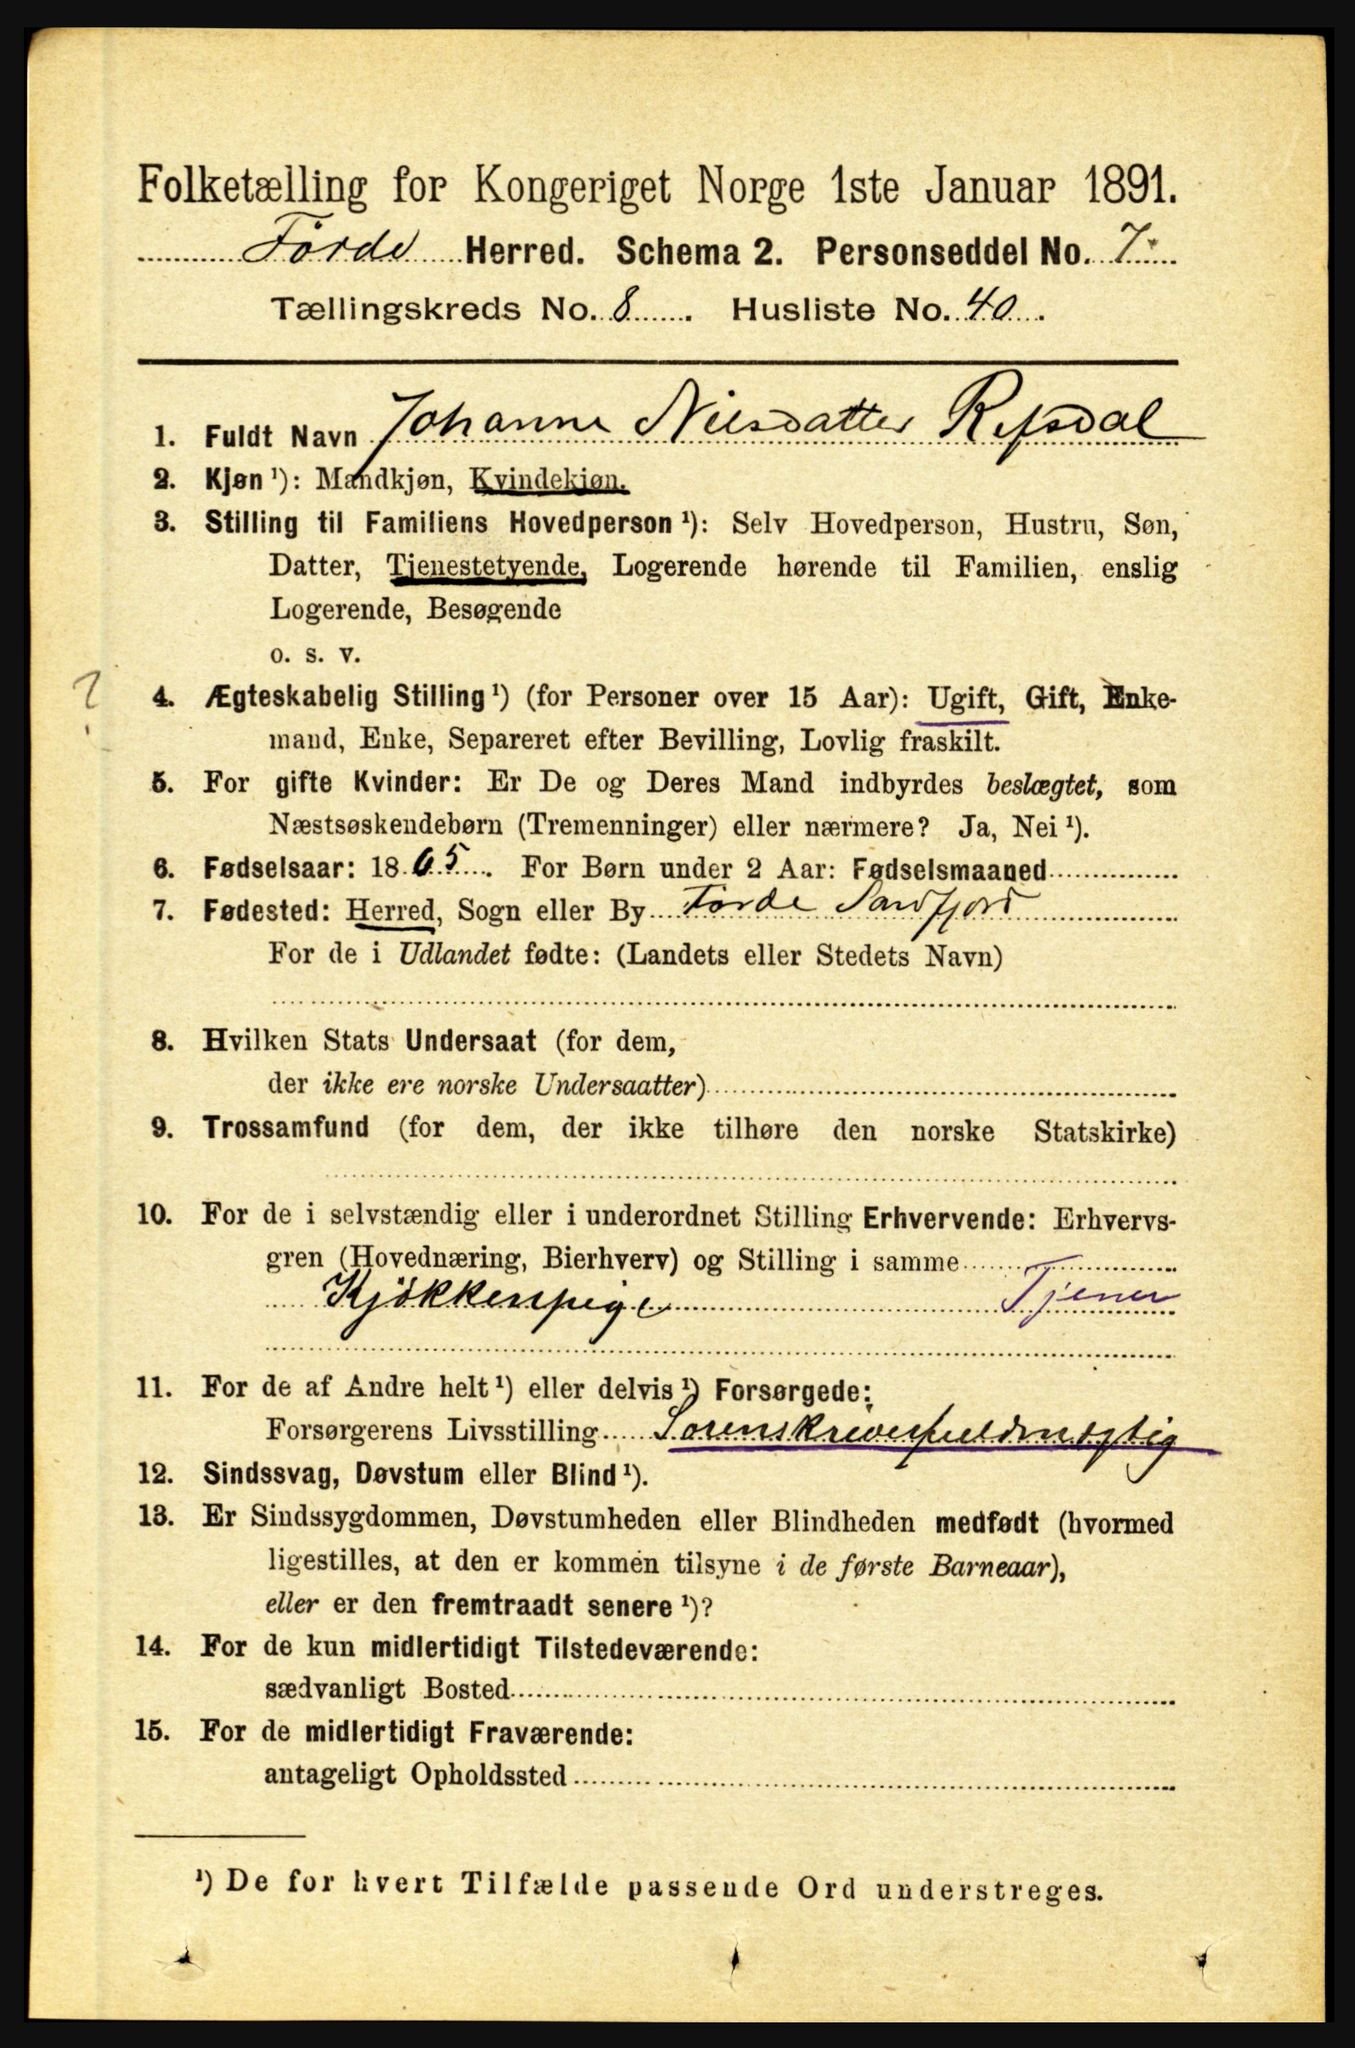 Folketælling for Kongeriget Norge 1ste Januar 1891.
Förde Herred. Schema 2. Personseddel No. 7.
Tællingskreds No. 8. Husliste No. 40.
1. Fuldt Navn Johanne Nilsdatter Refsdal
2. Kjøn ¹): Mandkjøn, Kvindekjøn.
3. Stilling til Familiens Hovedperson ¹): Selv Hovedperson, Hustru, Søn,
Datter, Tjenestetyende, Logerende hørende til Familien, enslig
Logerende, Besøgende
o. s. v.
?
4. Ægteskabelig Stilling ¹) (for Personer over 15 Aar): Ugift, Gift, Enke-
mand, Enke, Separeret efter Bevilling, Lovlig fraskilt.
5. For gifte Kvinder: Er De og Deres Mand indbyrdes beslægtet, som
Næstsøskendebørn (Tremenninger) eller nærmere? Ja, Nei ¹).
6. Fødselsaar: 1865. For Børn under 2 Aar: Fødselsmaaned
7. Fødested: Herred, Sogn eller By Förde Söndfjord
For de i Udlandet fødte: (Landets eller Stedets Navn)
8. Hvilken Stats Undersaat (for dem,
der ikke ere norske Undersaatter)
9. Trossamfund (for dem, der ikke tilhøre den norske Statskirke)
10. For de i selvstændig eller i underordnet Stilling Erhvervende: Erhvervs-
gren (Hovednæring, Bierhverv) og Stilling i samme
Kjökkenpige Tjener
11. For de af Andre helt ¹) eller delvis ¹) Forsørgede:
Forsørgerens Livsstilling Sorenskriverfuldmægtig
12. Sindssvag, Døvstum eller Blind ¹).
13. Er Sindssygdommen, Døvstumheden eller Blindheden medfødt (hvormed
ligestilles, at den er kommen tilsyne i de første Barneaar),
eller er den fremtraadt senere ¹)?
14. For de kun midlertidigt Tilstedeværende:
sædvanligt Bosted
15. For de midlertidigt Fraværende:
antageligt Opholdssted
¹) De for hvert Tilfælde passende Ord understreges.